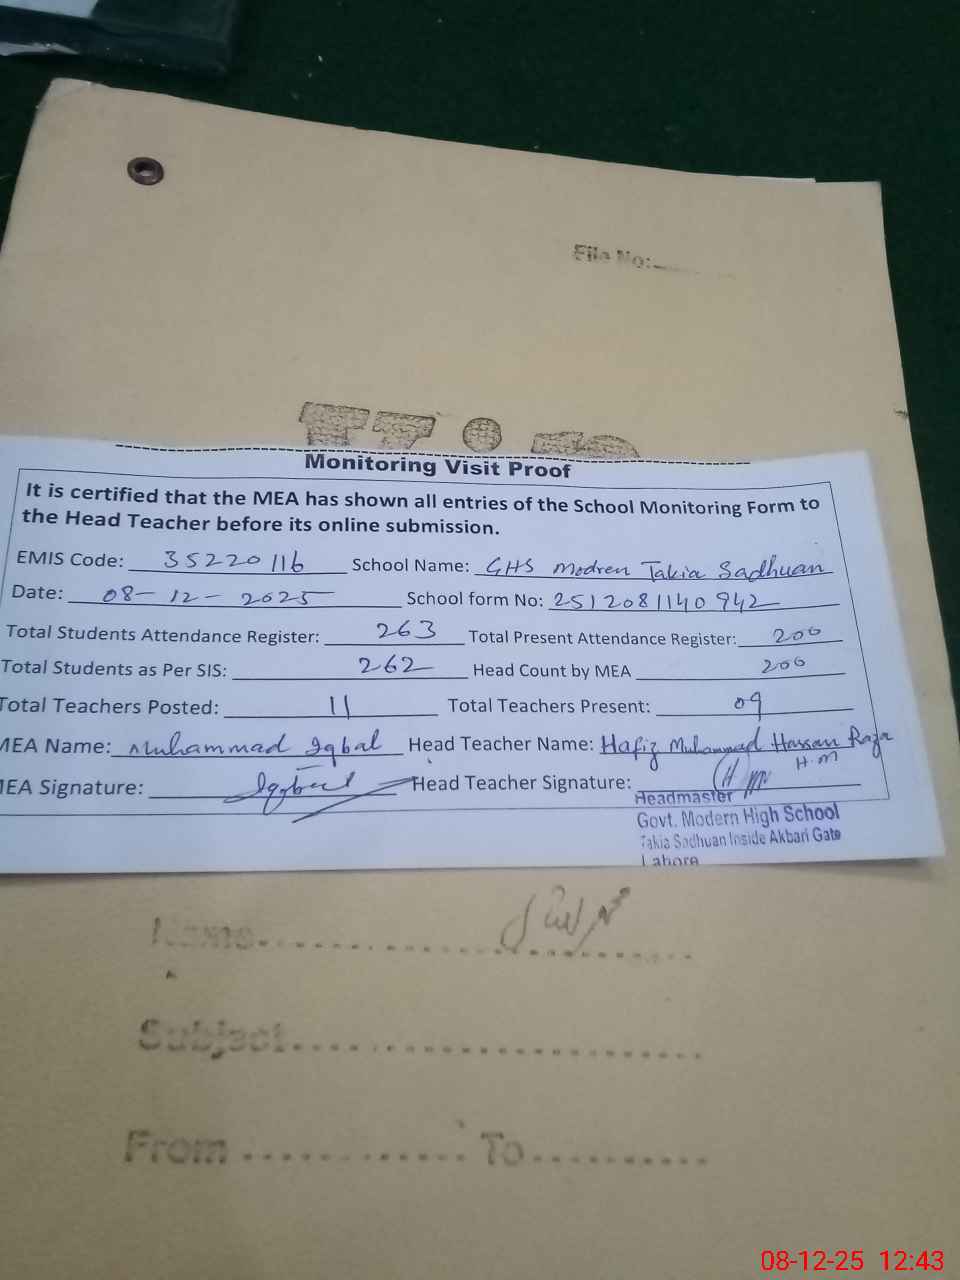 File No:
Monitoring Visit Proof
It is certified that the MEA has shown all entries of the School Monitoring Form to
the Head Teacher before its online submission.
EMIS Code: 35220116 School Name: GHS Modren Takia Sadhuan
Date: 08-12-2025 School form No: 2512081140942
Total Students Attendance Register: 263 Total Present Attendance Register: 200
Total Students as Per SIS: 262 Head Count by MEA 200
Total Teachers Posted: 11 Total Teachers Present: 09
MEA Name: Muhammad Iqbal Head Teacher Name: Hafiz Muhammad Hassan Raza
H.M
MEA Signature: Iqbal Head Teacher Signature:
Headmaster
Govt. Modern High School
Takia Sadhuan Inside Akbari Gate
Lahore
Name
Subject
From To
08-12-25 12:43